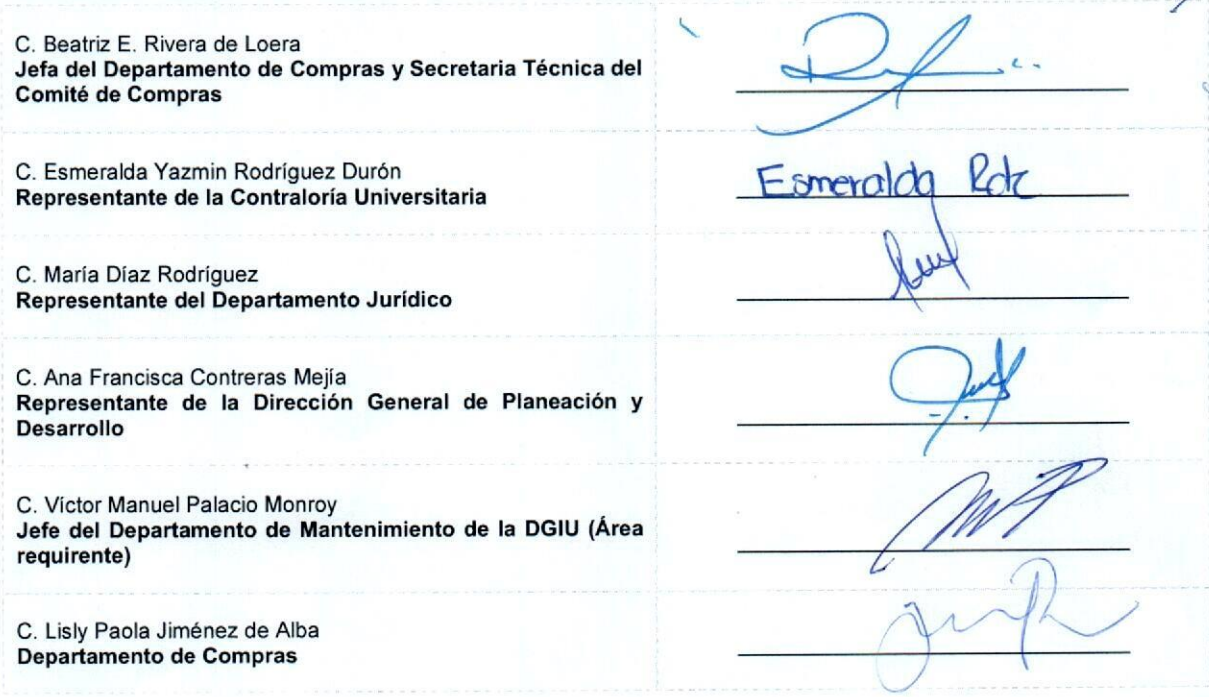 C. Beatriz E. Rivera de Loera
Jefa del Departamento de Compras y Secretaria Técnica del
Comité de Compras
C. Esmeralda Yazmin Rodríguez Durón
Representante de la Contraloría Universitaria
Esmeralda Rdz
C. María Díaz Rodríguez
Representante del Departamento Jurídico
C. Ana Francisca Contreras Mejía
Representante de la Dirección General de Planeación y
Desarrollo
C. Víctor Manuel Palacio Monroy
Jefe del Departamento de Mantenimiento de la DGIU (Área
requirente)
C. Lisly Paola Jiménez de Alba
Departamento de Compras